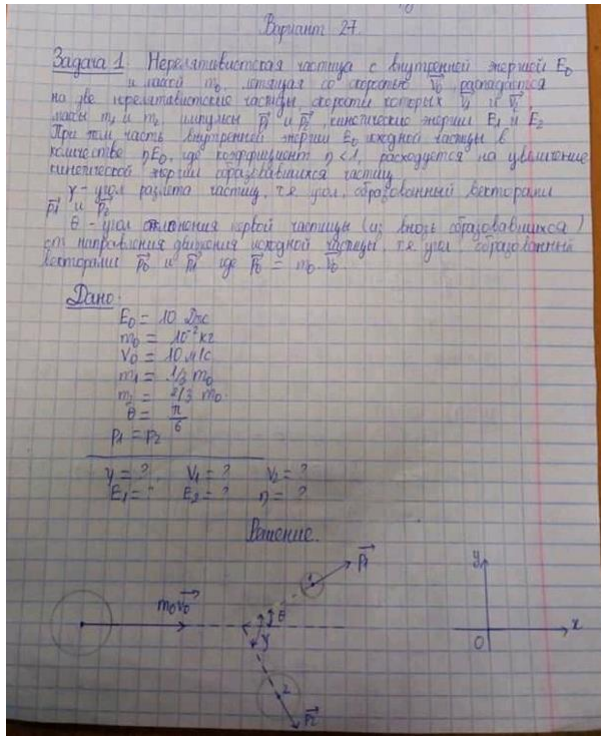 Вариант 27.
Задача 1. Нерелятивистская частица с внутренней энергией E₀
и массой m₀, летящая со скоростью V₀ распадается
на две нерелятивистские частицы, скорости которых V₁ и V₂,
массы m₁ и m₂, импульсы p₁ и p₂, кинетические энергии E₁ и E₂
При этом часть внутренней энергии E₀ исходной частицы в
количестве ηE₀, где коэффициент η<1, расходуется на увеличение
кинетической энергии образовавшихся частиц
γ - угол разлета частиц, т.е угол, образованный векторами
p₁ и p₂
θ - угол отклонения первой частицы (из вновь образовавшихся)
от направления движения исходной частицы, т.е угол образованный
векторами p₀ и p₁ где p₀ = m₀·V₀
Дано:
E₀ = 10 Дж
m₀ = 10⁻² кг
V₀ = 10 м/с
m₁ = 1/3 m₀
m₂ = 2/3 m₀
θ = π/6
p₁ = p₂
γ = ? V₁ = ? V₂ = ?
E₁ = ? E₂ = ? η = ?
Решение.
1 p₁
y
m₀V₀
θ
γ
0 x
2
p₂